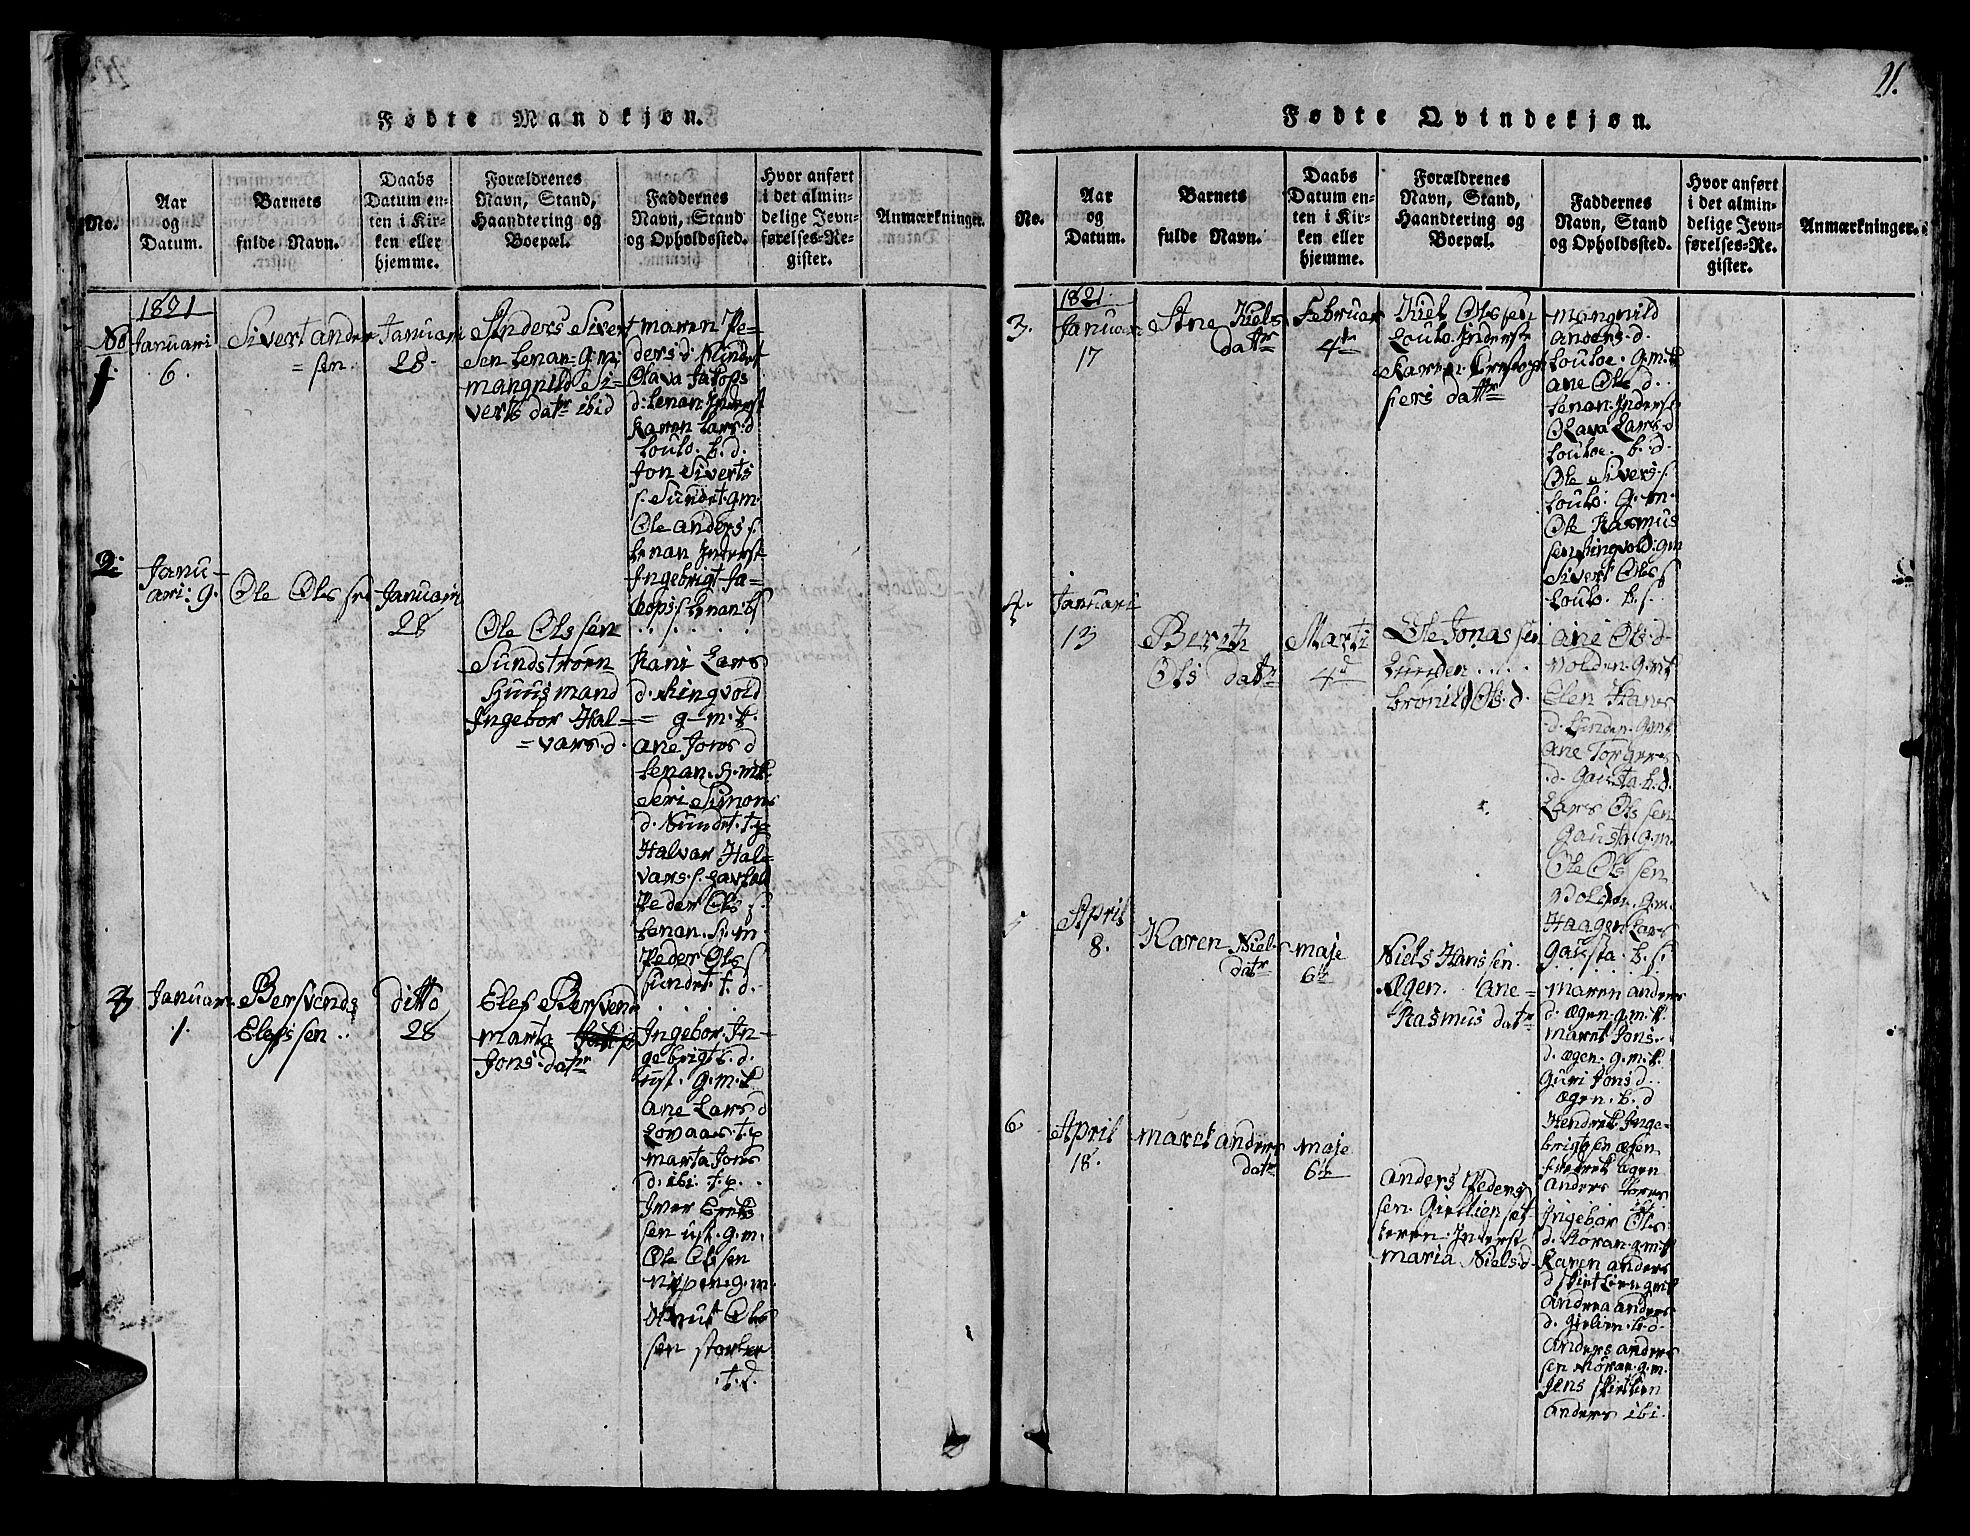 21.
Fødte Mandkjøn.
No.
Aar
og
Datum.
Barnets
fulde Navn.
Daabs
Datum en-
ten i Kir-
ken eller
hjemme.
Forældrenes
Navn, Stand,
Haandtering og
Boepæl.
Faddernes
Navn, Stand
og Opholdssted.
Hvor anført
i det almin-
delige Jevn-
førelses-Re-
gister.
Anmærkninger.
1821
No
1
Januari
6.
Sivert ander
= sen
Januari
28.
Anders Sivert
sen Lenan=
mangnild Si-
verts datr ibid
maren Pe-
ders d
Olava Jakops
d: Lenan Inderst
Karen Lars. d
Loulo. b. d.
Jon Siverts
s. Sundet. g.m.
Ole anders. s.
Lenan Inderst
Ingebrigt Ja=
kops s Lenan. b s
2.
Janu-
ari: 9.
Ole Ols sen
Januari
28
Ole Ols sen
Sundstrøen
Huusmand
Ingebor Hal=
= vars. d.
Rani Lars
d. Ringvold
= g-m-k.
ane Jons d
Lenan. H. mk.
Seri Simons
d. Sundet. t.p
Halvar Hal=
vars. s.
Peder Ols s.
Lenan. H. m.
Peder Ols s
sundet. t. d.
3
Januari
1.
Bersvends
Elefs sen
ditto
28
Elef Bersvend
marta
Jons. datr
Ingebor. In-
gebrigts. d.
ust. g. m. k
ane Lars d
Løvaas. t. p
marta Jons
d. ibi. t. p.
Iver Eriks
sen ust. g. m.
Ole Olssen
nypen. g. m.
Knut Ols
sen
t. d.
Fødte Qvindekjøn.
No.
Aar
og
Datum.
Barnets
fulde Navn.
Daabs
Datum en-
ten i Kir-
ken eller
hjemme.
Forældrenes
Navn, Stand,
Haandtering og
Boepæl.
Faddernes
Navn, Stand
og Opholdssted.
Hvor anført
i det almin-
delige Jevn-
førelses-Re-
gister.
Anmærkninger.
1821
3.
Januari
17
Ane Kiels
datr
Februar
4de
Kiel Ols sen
Loulo. Inderst
Karen
datr
mangnild
anders. d.
Louloe. g. m. k
ane Ols d.
Lenan. Inderst
Olava Lars d
Louloe. b. d.
Ole Sivers. s
Loulo. g. m.
Ole Rasmus
sen Ringvold: g m
Sivert Ols s
Loulo. b. s.
4.
Januari
13
Berit
Ols datr
Marti
4d
Ole Jonas sen
Lunden
Bronild Ols. d.
ane Ols. d
volden. g. mk
Elen Hans
d. Lunden. g mk
ane Torgers
d. Gausta. b. d.
Lars Ols sen
Gausta. g. m.
Ole Ols sen
Volden. g. m.
Haagen Lars
Gausta. b. s.
April
8.
Karen Niels
datr
maje
6te
Niels Hans sen.
Ægen. Ane=
Rasmus datr
maren anders
d. ægen. g. m. k.
marit Jons.
d. ægen. g. m. k.
Guri Jons d.
ægen. b. d
Hendrik Inge-
brigtsen ægen
ægen
anders
ibi
6
April
18.
marit anders
datr
maje
6te
anders Peders
sen. Girtlien
Inderst
maria Niels. d.
Ingebor Ols
d. Moran. g. m. k
Karen anders
d
Andrea anders
d. b. d.
anders anders
sen Moran. g. m.
Jens
anders ibi.